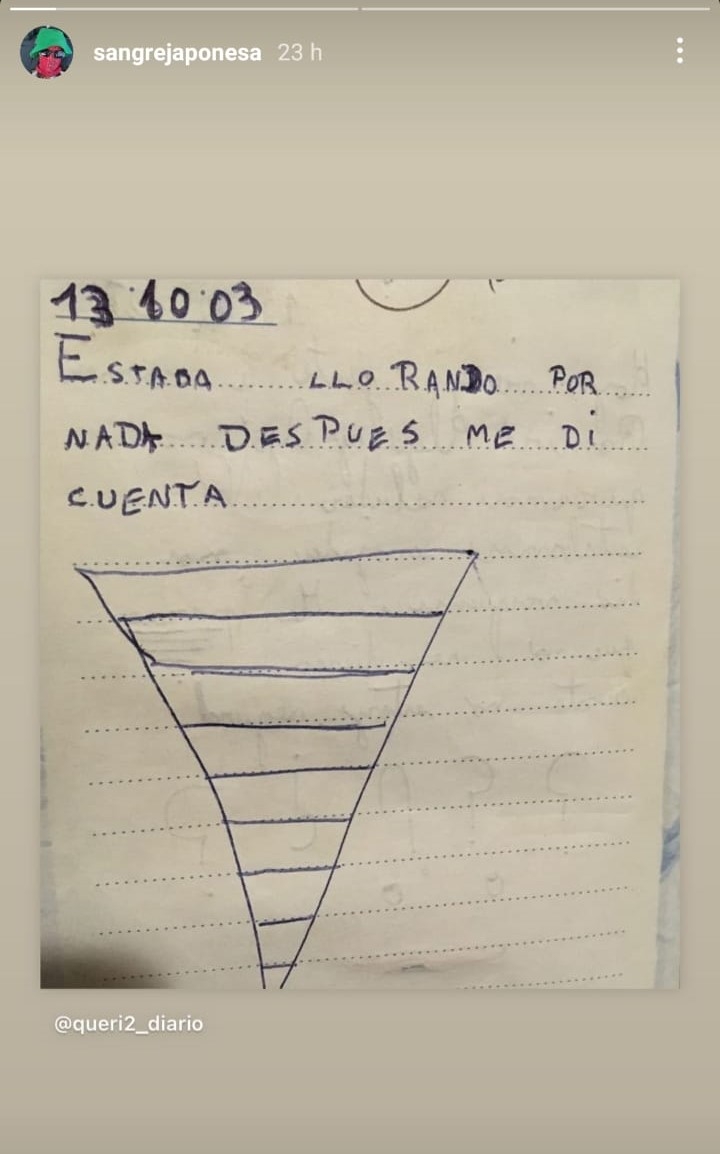 sangrejaponesa 23 h
13 · 10 · 03
ESTABA LLORANDO POR
NADA DESPUES ME DI
CUENTA
@queri2_diario